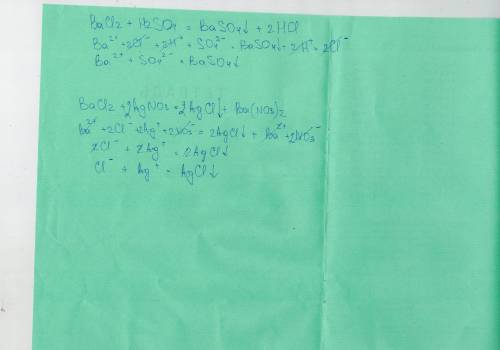 BaCl2 + H2SO4 = BaSO4↓ + 2HCl
Ba²⁺ + 2Cl⁻ + 2H⁺ + SO4²⁻ = BaSO4↓ + 2H⁺ + 2Cl⁻
Ba²⁺ + SO4²⁻ = BaSO4↓
BaCl2 + 2AgNO3 = 2AgCl↓ + Ba(NO3)2
Ba²⁺ + 2Cl⁻ + 2Ag⁺ + 2NO3⁻ = 2AgCl↓ + Ba²⁺ + 2NO3⁻
2Cl⁻ + 2Ag⁺ = 2AgCl↓
Cl⁻ + Ag⁺ = AgCl↓